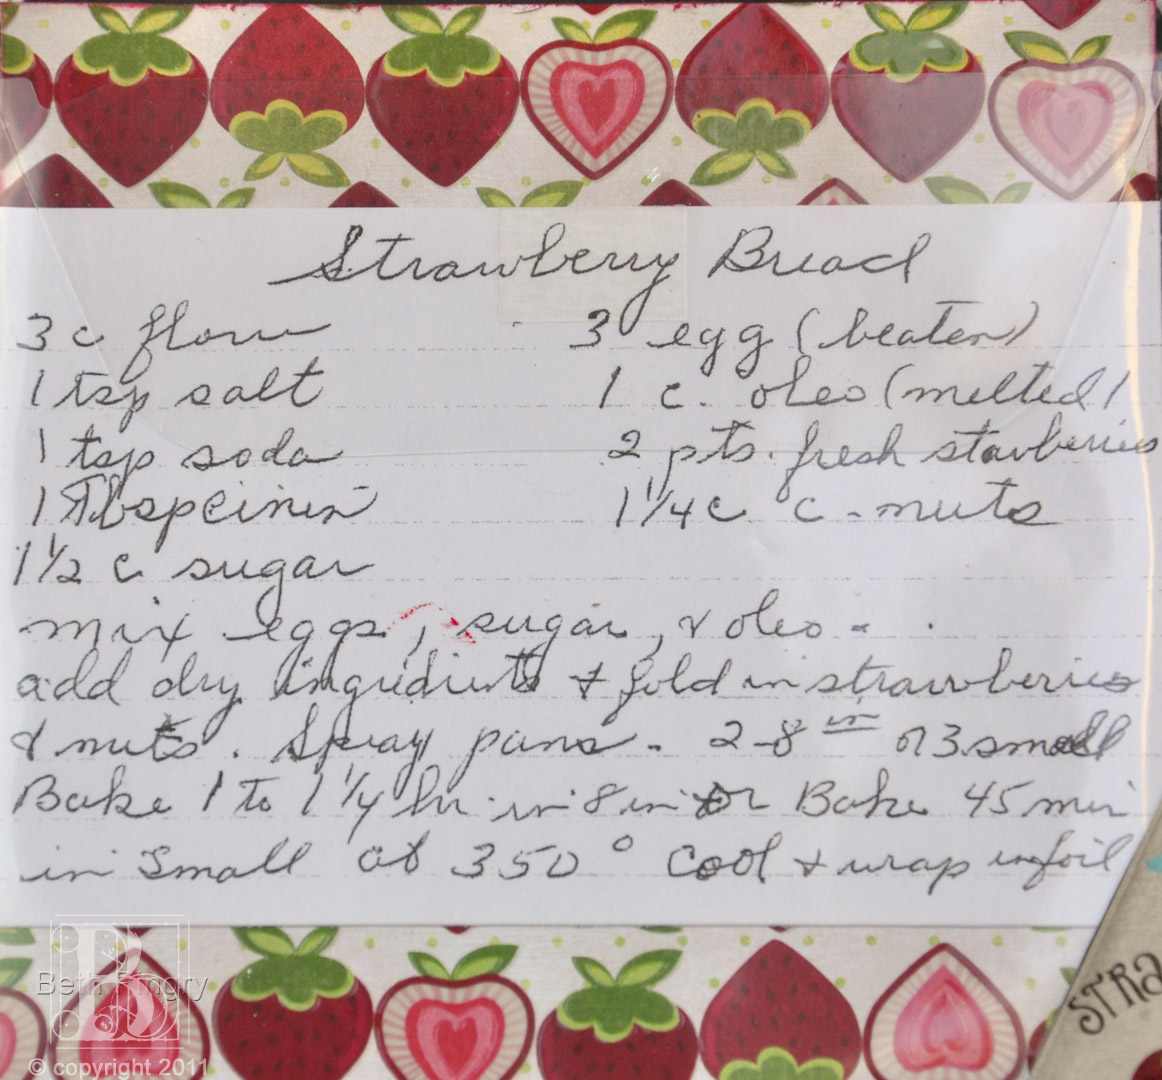 Strawberry Bread
3 c flour 3 egg (beaten)
1 tsp salt 1 c. oleo (melted)
1 tsp soda 2 pts. fresh stawberries
1 Tbsp 1 1/4 c c. nuts
1 1/2 c sugar
mix eggs, sugar, & oleo -
add dry ingredients & fold in strawberries
& nuts. Spray pans - 2-8 in or 3 small
Bake 1 to 1 1/4 hr. in 8 in or Bake 45 min
in small at 350° Cool & wrap in foil
STRA
Beth Kingry
© copyright 2011